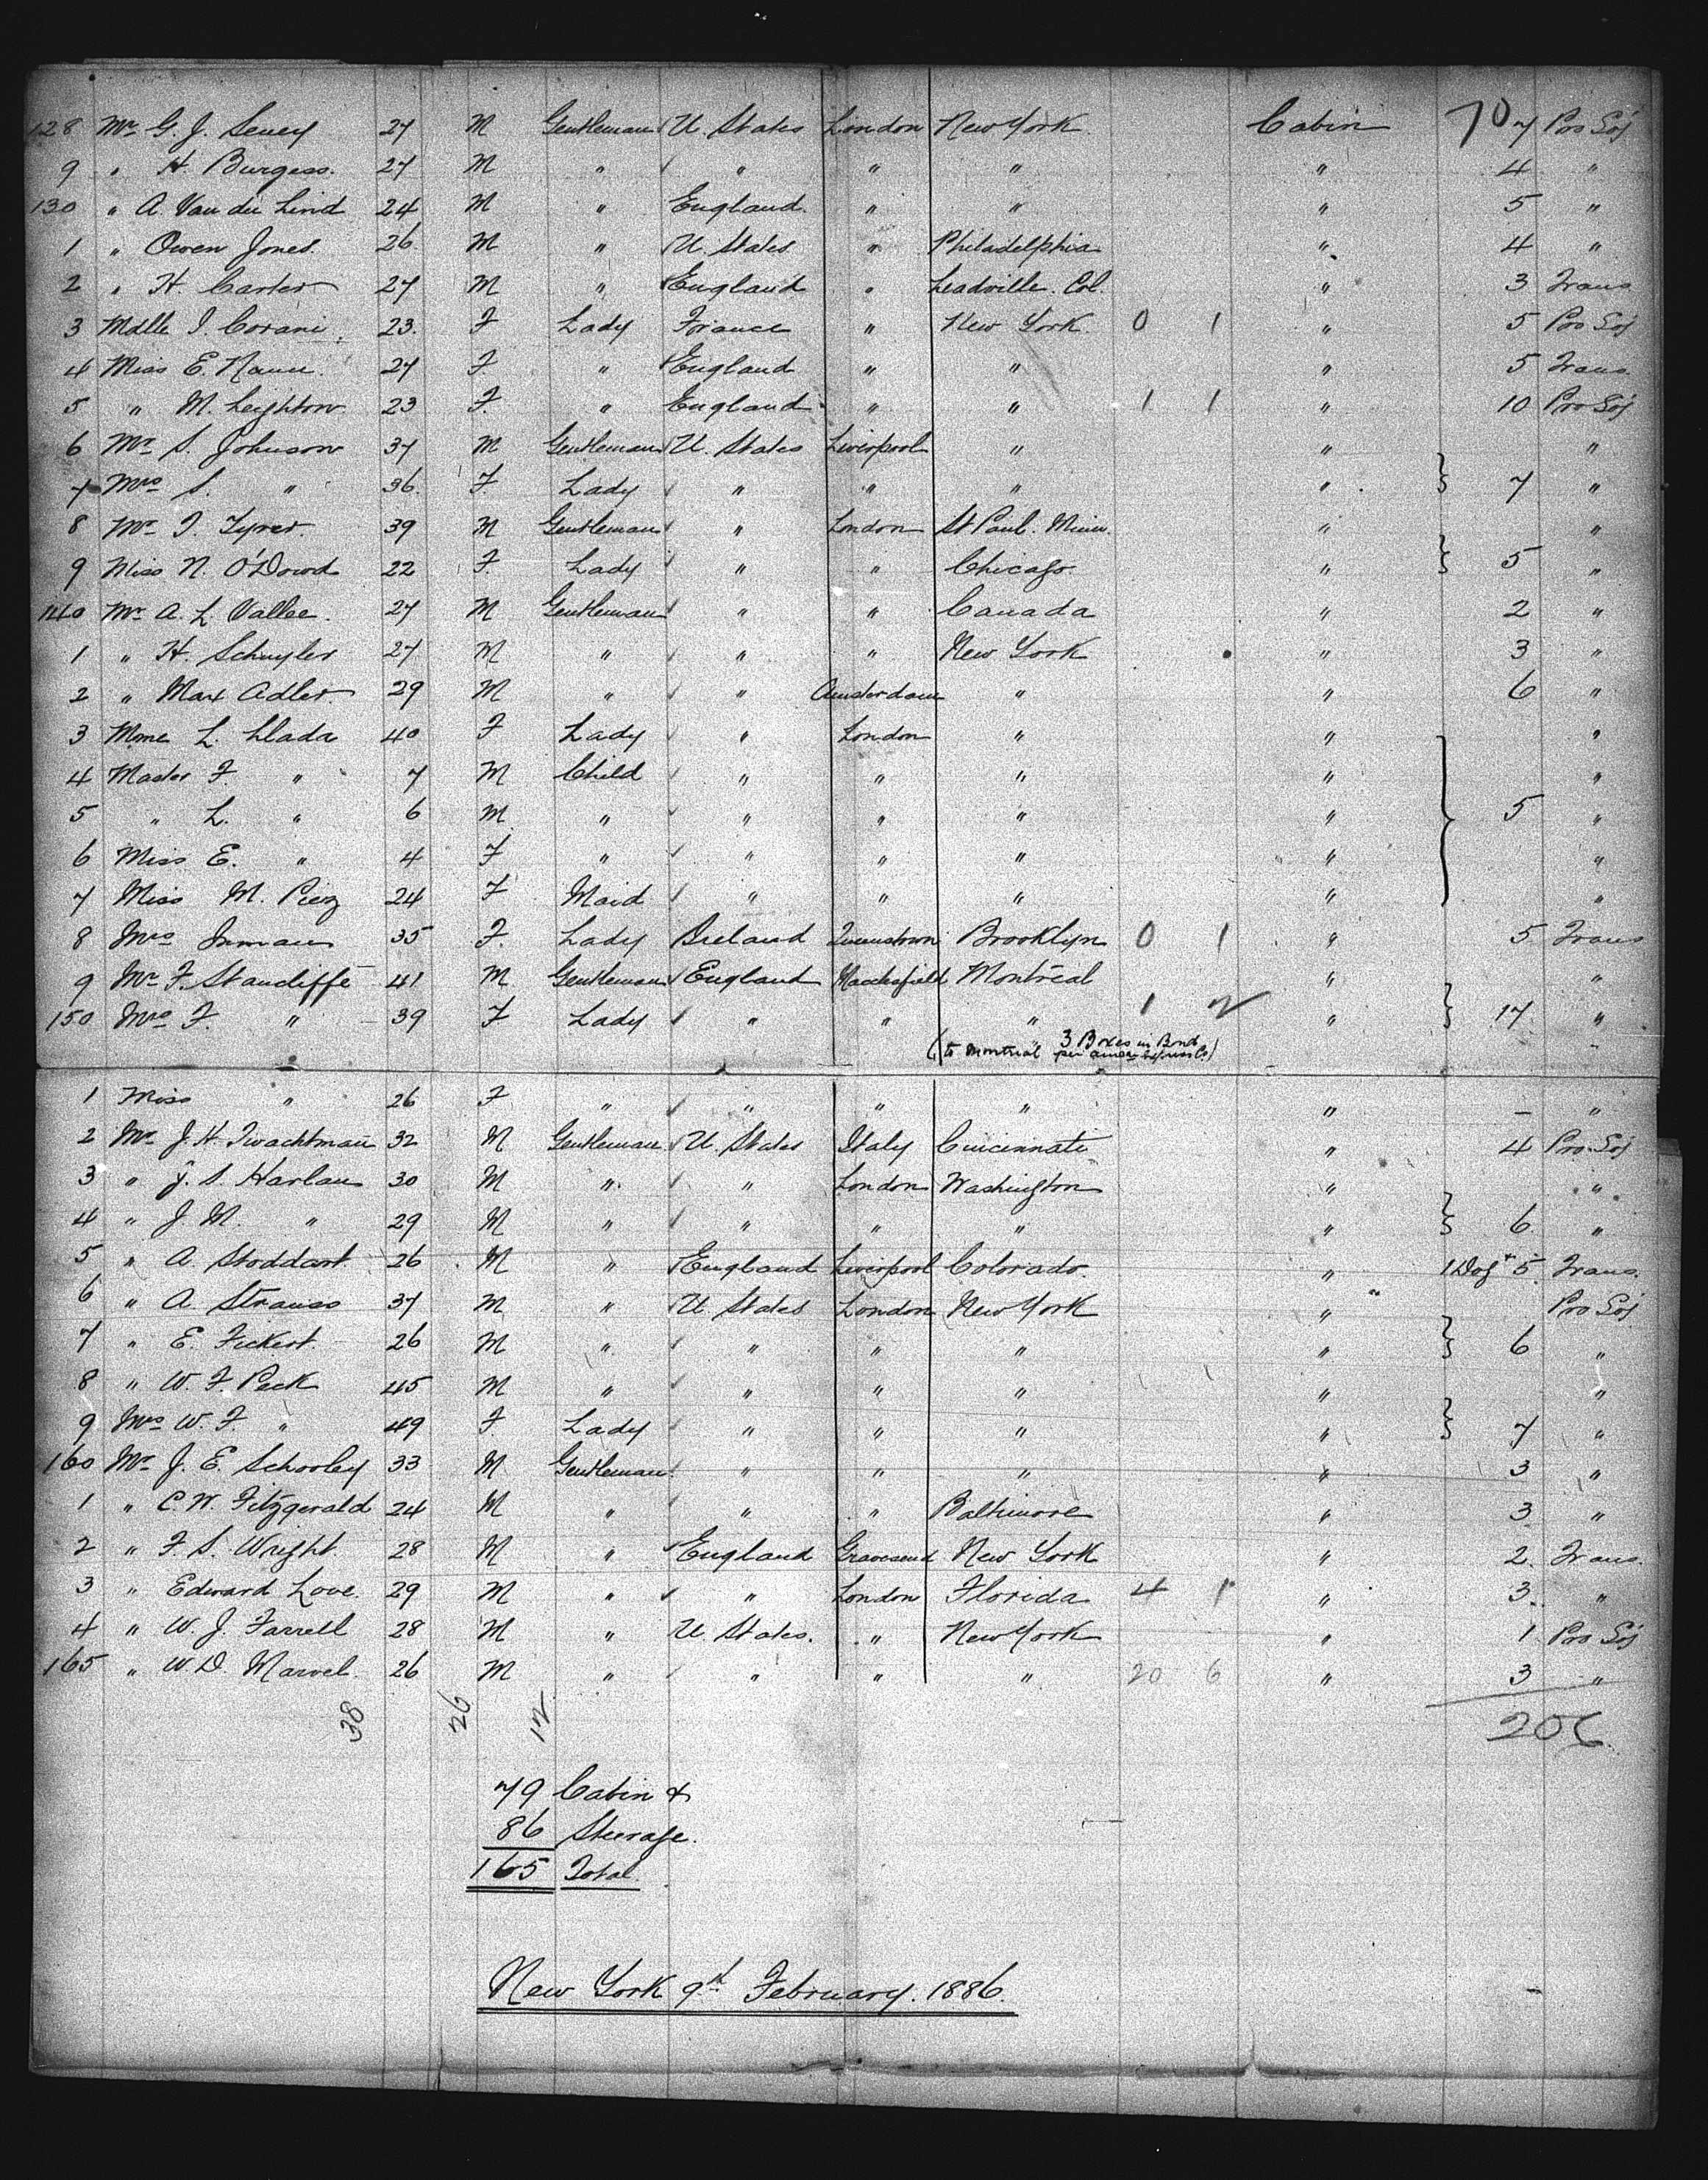 128 Mr G. J. Seney 27 M Gentleman U. States London New York Cabin 70 7 Pro Soj
9 " H. Burgess. 27 M " " " " " 4 "
130 " A. Van der Lind 24 M " England " " " 5 "
1 " Owen Jones. 26 M " U. States " Philadelphia " 4 "
2 " H. Carter 27 M " England " Leadville. Col. " 3 Trans
3 Mdlle I. Corani 23. F Lady France " New York 0 1 " 5 Pro Soj
4 Miss E. 27 F " England " " " 5 Trans.
5 " M. Leighton 23 F. " England " " 1 1 " 10 Pro Soj
6 Mr S. Johnson 37 M Gentleman U. States Liverpool " " "
7 Mrs S. " 36. F. Lady " " " " 7 "
8 Mr I. Tyrer. 39 M Gentleman " London St Paul. Minn. " "
9 Miss N. O'Dowd 22 F. Lady " " Chicago. " 5 "
140 Mr A. L. Vallee. 27 M Gentleman " " Canada " 2 "
1 " H. Schuyler 27 M " " " New York " 3 "
2 " Max Adler. 29 M " " Amsterdam " " 6 "
3 Mme L. Llada 40 F Lady " London " " "
4 Master F " 7 M Child " " " " "
5 " L. " 6 M " " " " " 5 "
6 Miss E. " 4 F " " " " " "
7 Miss M. 24 F Maid " " " " "
8 Mrs Inman 35 F. Lady Ireland Queenstown Brooklyn 0 1 " 5 Trans
9 Mr F. Stancliffe 41 M Gentleman England Macclesfield Montreal " "
150 Mrs F. " 39 F Lady " " " 1 2 " 17. "
(to Montreal 3 Boxes in Bond per Amer Express Co)
1 Miss " 26 F " " " " " – "
2 Mr J. H. Twachtman 32 M Gentleman U. States Italy Cincinnati " 4 Pro Soj
3 " J. S. Harlan 30 M " " London Washington " "
4 " J. M. " 29 M " " " " " 6. "
5 " A. Stoddart 26 M " England Liverpool Colorado. " 1 Dog + 5. Trans.
6 " A. Strauss 37 M " U States London New York " Pro Soj
7 " E. Fickert. 26 M " " " " " 6 "
8 " W. F. Peck 45 M " " " " " "
9 Mrs W. F. " 49 F. Lady " " " " 7 "
160 Mr J. E. Schooley 33 M Gentleman. " " " " 3 "
1 " C. W. Fitzgerald 24 M " " " Baltimore " 3 "
2 " F. S. Wright. 28 M " England Gravesend New York " 2. Trans.
3 " Edward Love. 29 M " " London Florida 4 1 " 3. "
4 " W. J. Farrell 28 M " U. States. " New York " 1 Pro Soj
165 " W D. Marvel. 26 M " " " " 20 6 " 3 "
38 26 12
206.
79 Cabin &
86 Steerage.
165 Total.
New York 9th February. 1886.